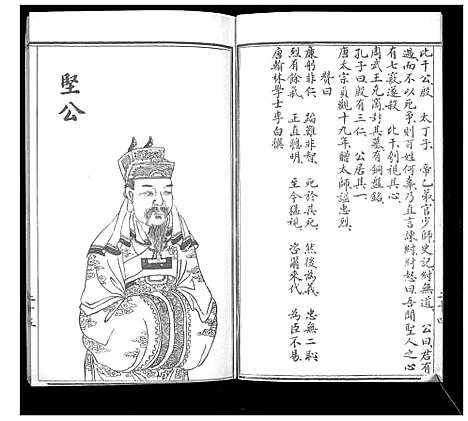 比干公殷 太丁子 帝乙弟官少師史記紂無道 公曰君有
過而不以死爭則百姓何辜乃直言諫紂紂怒曰吾聞聖人之心
有七竅遂殺 比干剖視其心
周武王克商封其墓有銅盤銘
孔子曰殷有三仁 公居其一
唐太宗貞觀十九年贈太師諡忠烈
贊曰
康躬非仁 蹈難非智 死於其死 然後為義 忠無二
烈有餘氣 正直聰明 至今猛視 咨爾來代 為臣不易
唐翰林學士李白撰
堅公